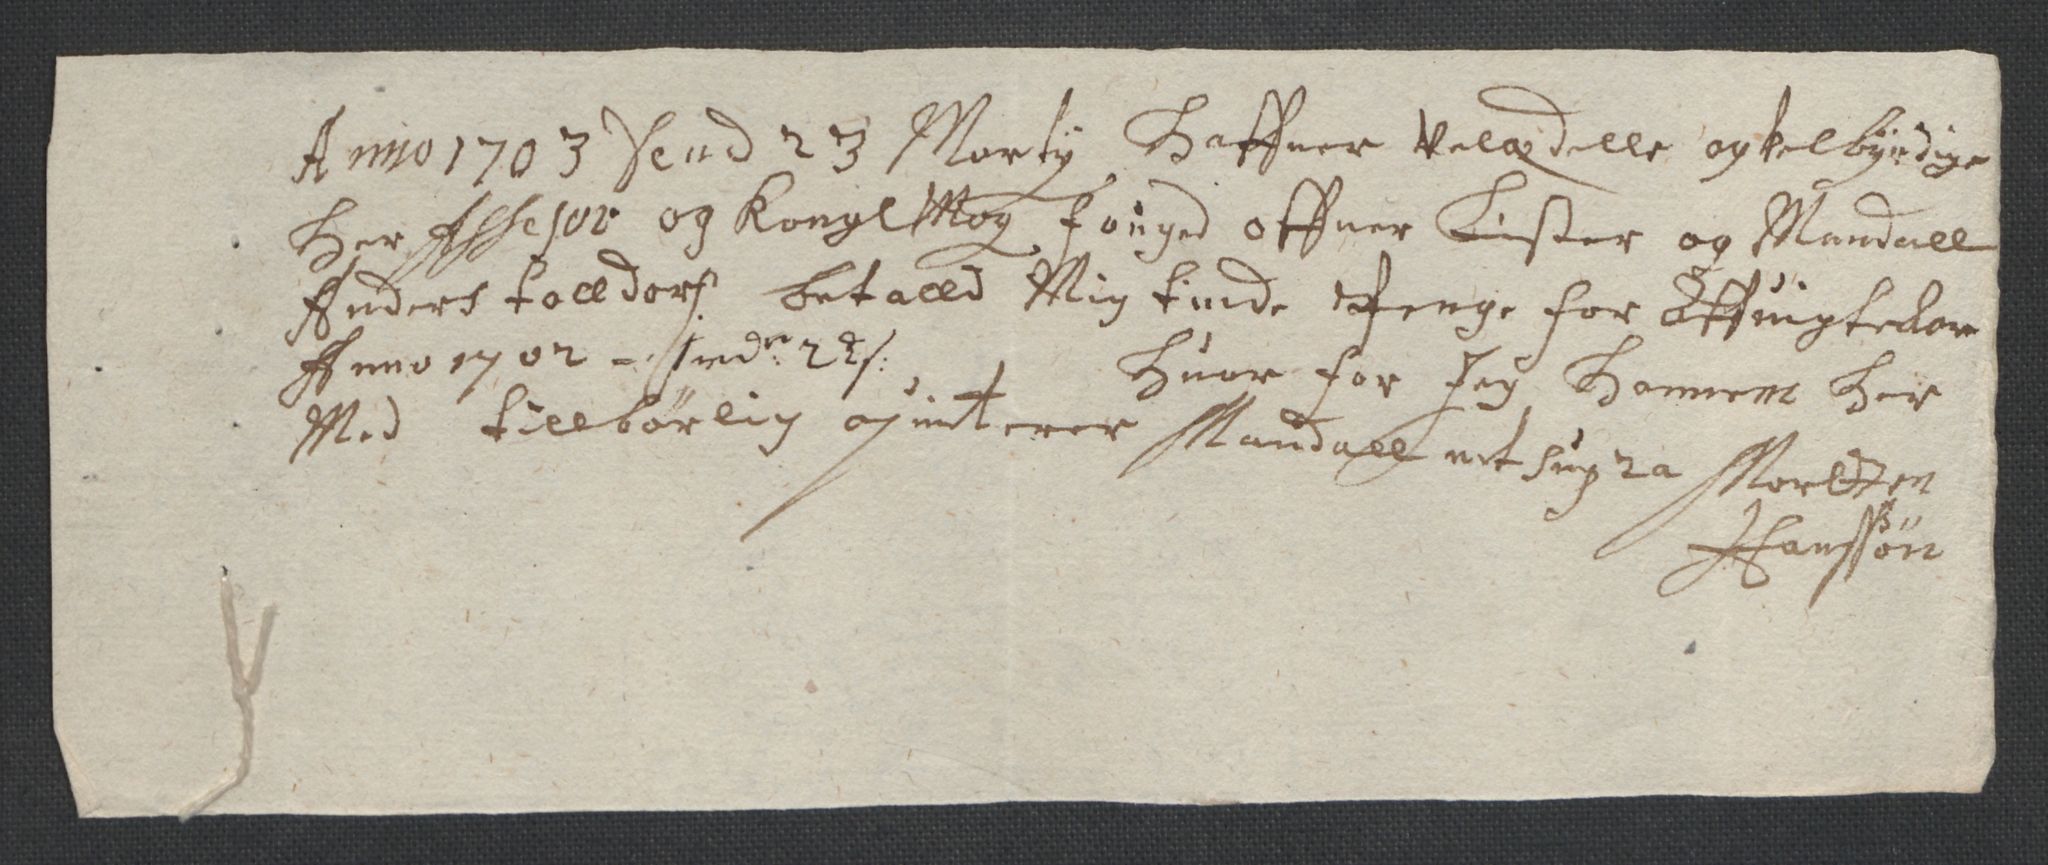 Anno 1703 Dend 23 Marty Haffuer Velædelle og velbyrdige
Her Assesor og Kongl May Fouged offuer Lister og Mandall
Anders tolldorf betalld Mig tiende Penge for
Anno 1702 -
Huor for Jeg hannem her
Med tillbörlig quitterer Mandall ut supra Mortten
Hanssön